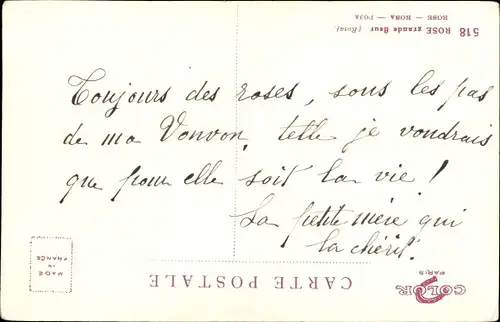 Toujours des roses, sous les pas
de ma Vonvon, telle je voudrais
que pour elle soit la vie !
La petite mère qui
la chérit.
518 ROSE grande fleur (Rosa).
ROSE — ROSA — РОЗА
CARTE POSTALE
MADE
IN
FRANCE
COLOR
PARIS